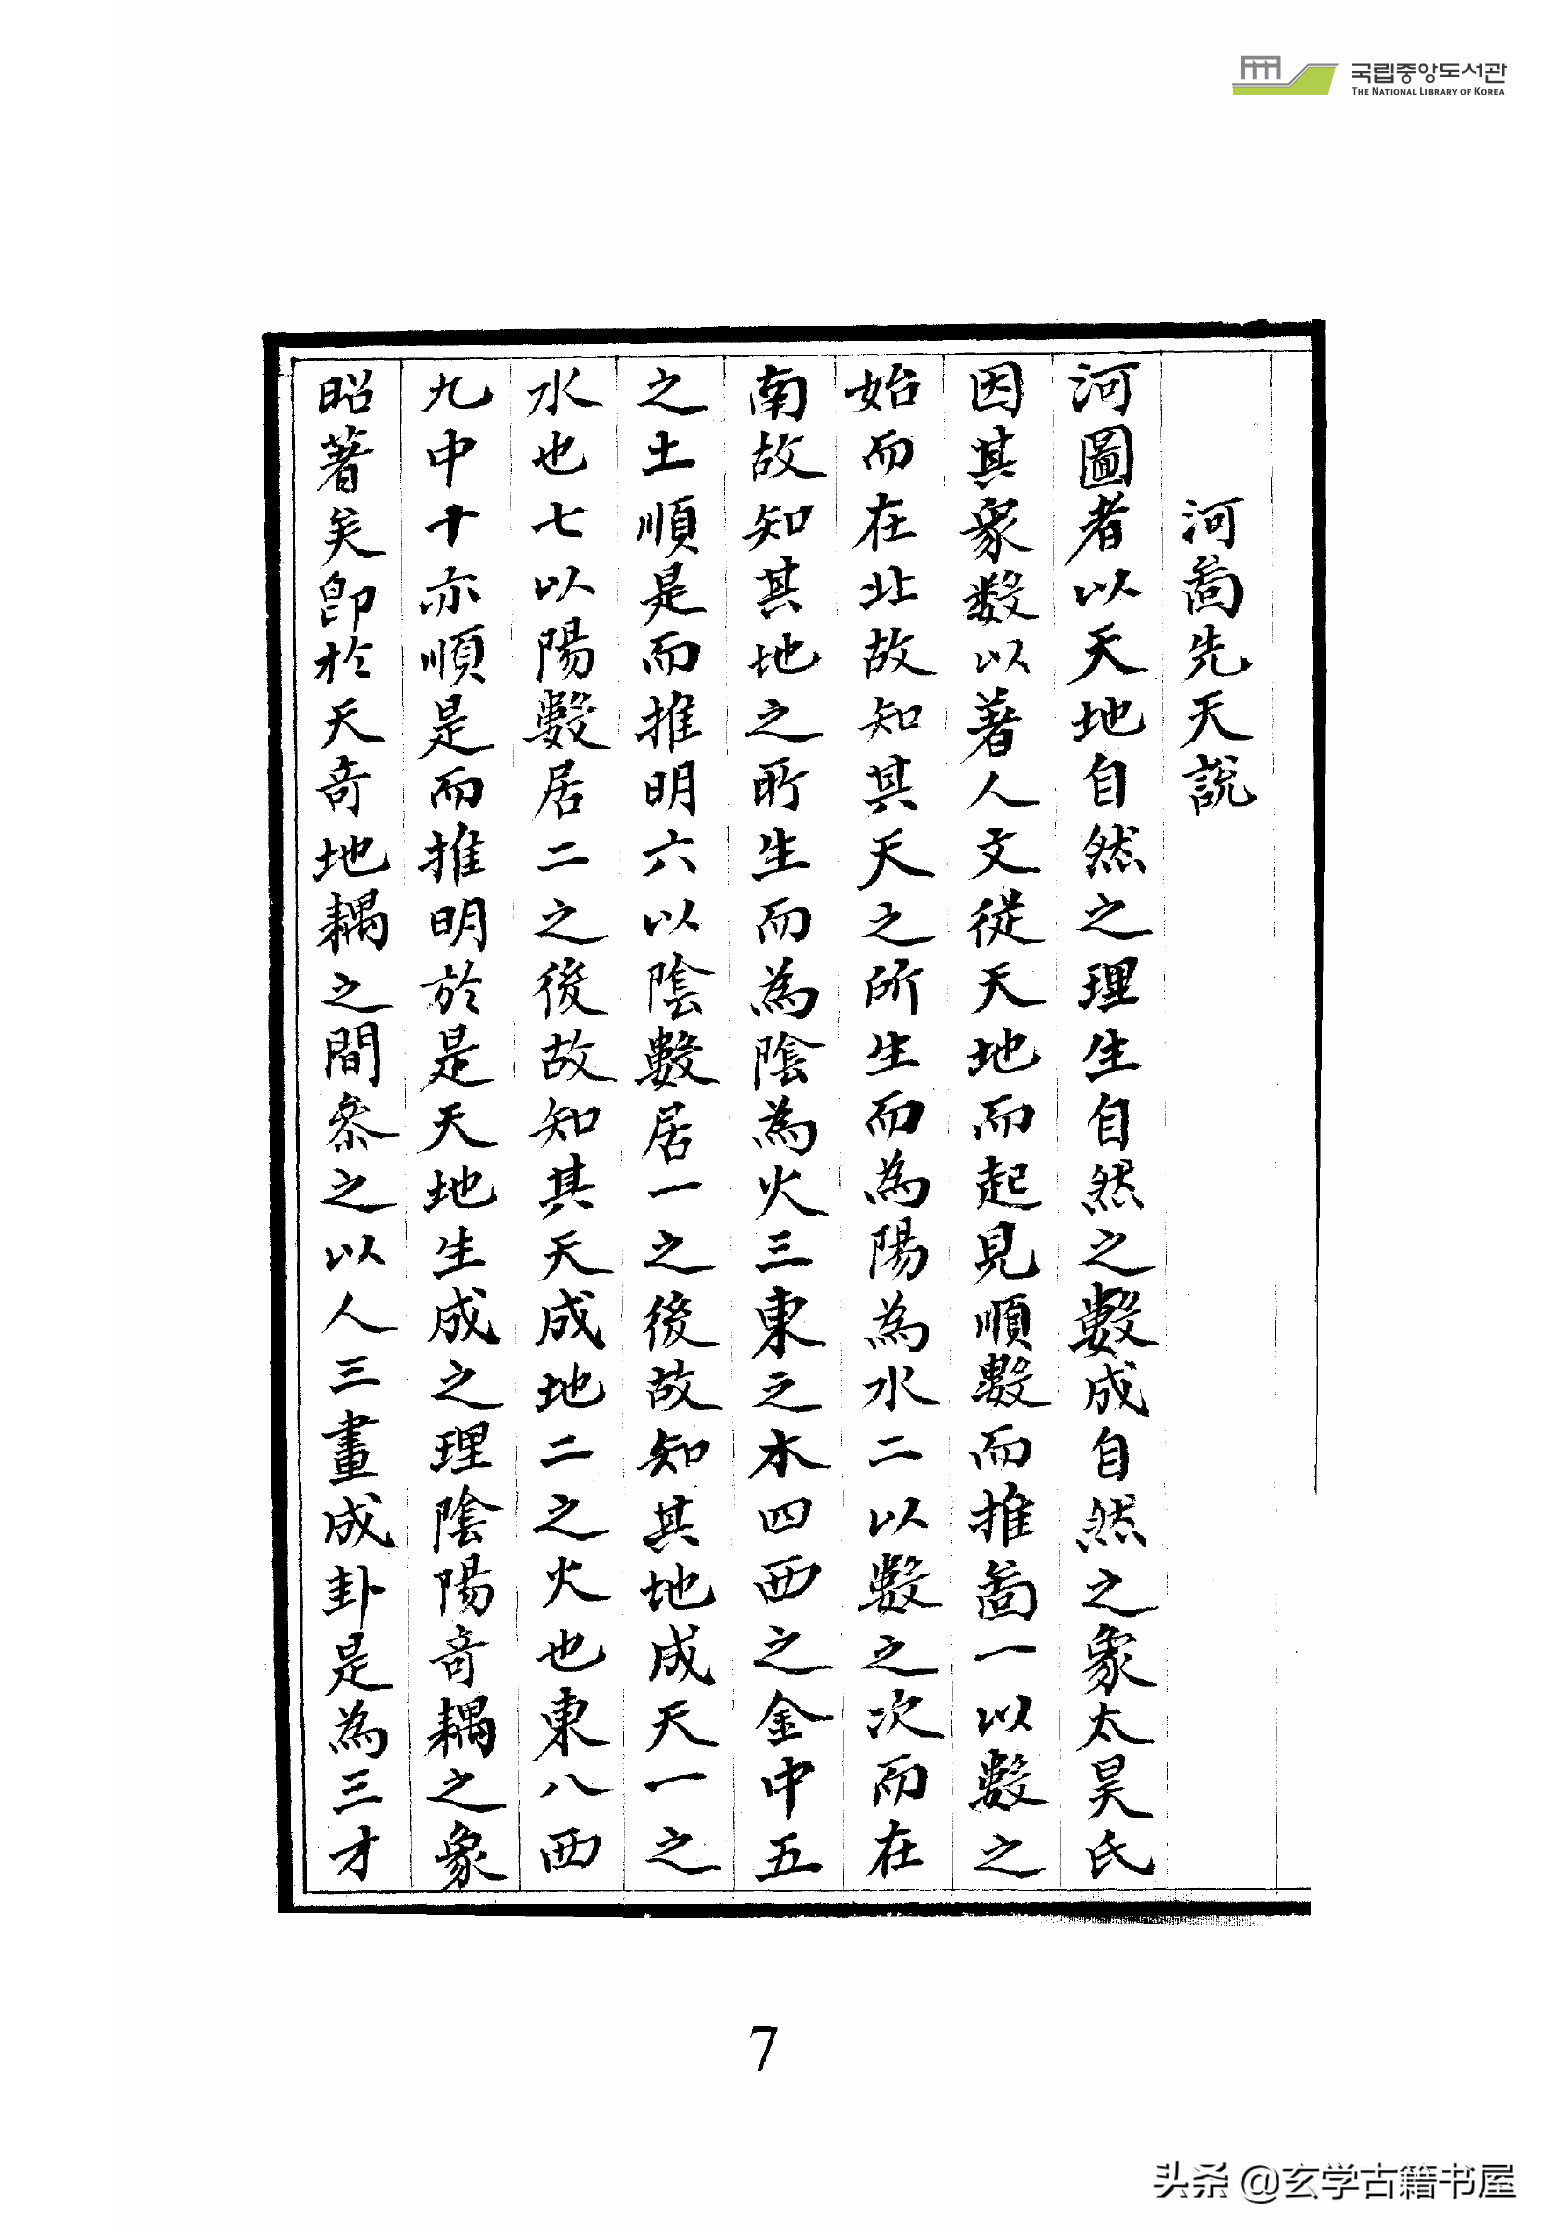 국립중앙도서관
THE NATIONAL LIBRARY OF KOREA
河啚先天說
河圖者以天地自然之理生自然之數成自然之象太昊氏
因其象数以著人文從天地而起見順數而推啚一以數之
始而在北故知其天之所生而為陽為水二以數之次而在
南故知其地之所生而為陰為火三東之木四西之金中五
之土順是而推明六以陰數居一之後故知其地成天一之
水也七以陽數居二之後故知其天成地二之火也東八西
九中十亦順是而推明於是天地生成之理陰陽竒耦之象
昭著矣卽於天竒地耦之間叅之以人三畫成卦是為三才
7
头条 @玄学古籍书屋